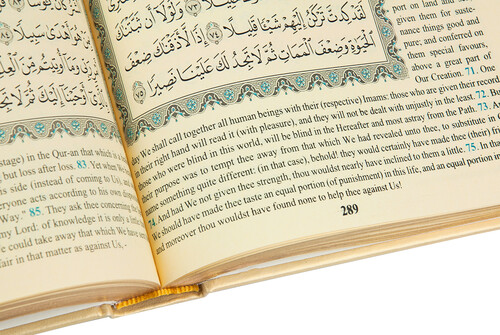 هَدَىٰ سَبِيلًا
أَوْحَيْنَا إِلَيْكَ ثُمَّ لَا تَجِدُ
stage) in the Qur-an that which is a
but loss after loss. 83. Yet when We
his side (instead of coming to Us), a
everyone acts according to his own dis
Way." 85. They ask thee concerning the
my Lord: of knowledge it is only a little
We could take away that which We have
affair in that matter as against Us,
وَلَوْلَا أَن
لَقَدْ كِدتَّ تَرْكَنُ إِلَيْهِمْ شَيْئًا قَلِيلًا ﴿٧٤﴾ إِذًا لَّأَذَقْنَٰكَ ضِعْفَ
ٱلْحَيَوٰةِ وَضِعْفَ ٱلْمَمَاتِ ثُمَّ لَا تَجِدُ لَكَ عَلَيْنَا نَصِيرًا ﴿٧٥﴾
port on land and
given them for suste-
nance things good and
pure; and conferred on
them special favours,
above a great part of
Our Creation. 71. One
day We shall call together all human beings with their (respective) Imams: those who are given their record
in their right hand will read it (with pleasure), and they will not be dealt with unjustly in the least. 72. But
those who were blind in this world, will be blind in the Hereafter and most astray from the Path. 73.
their purpose was to tempt thee away from that which We had revealed unto thee, to substitute in
name something quite different: (in that case), behold! they would certainly have made thee (their)
74. And had We not given thee strength, thou wouldst nearly have inclined to them a little. 75. In that
We should have made thee taste an equal portion (of punishment) in this life, and an equal portion
and moreover thou wouldst have found none to help thee against Us!
289